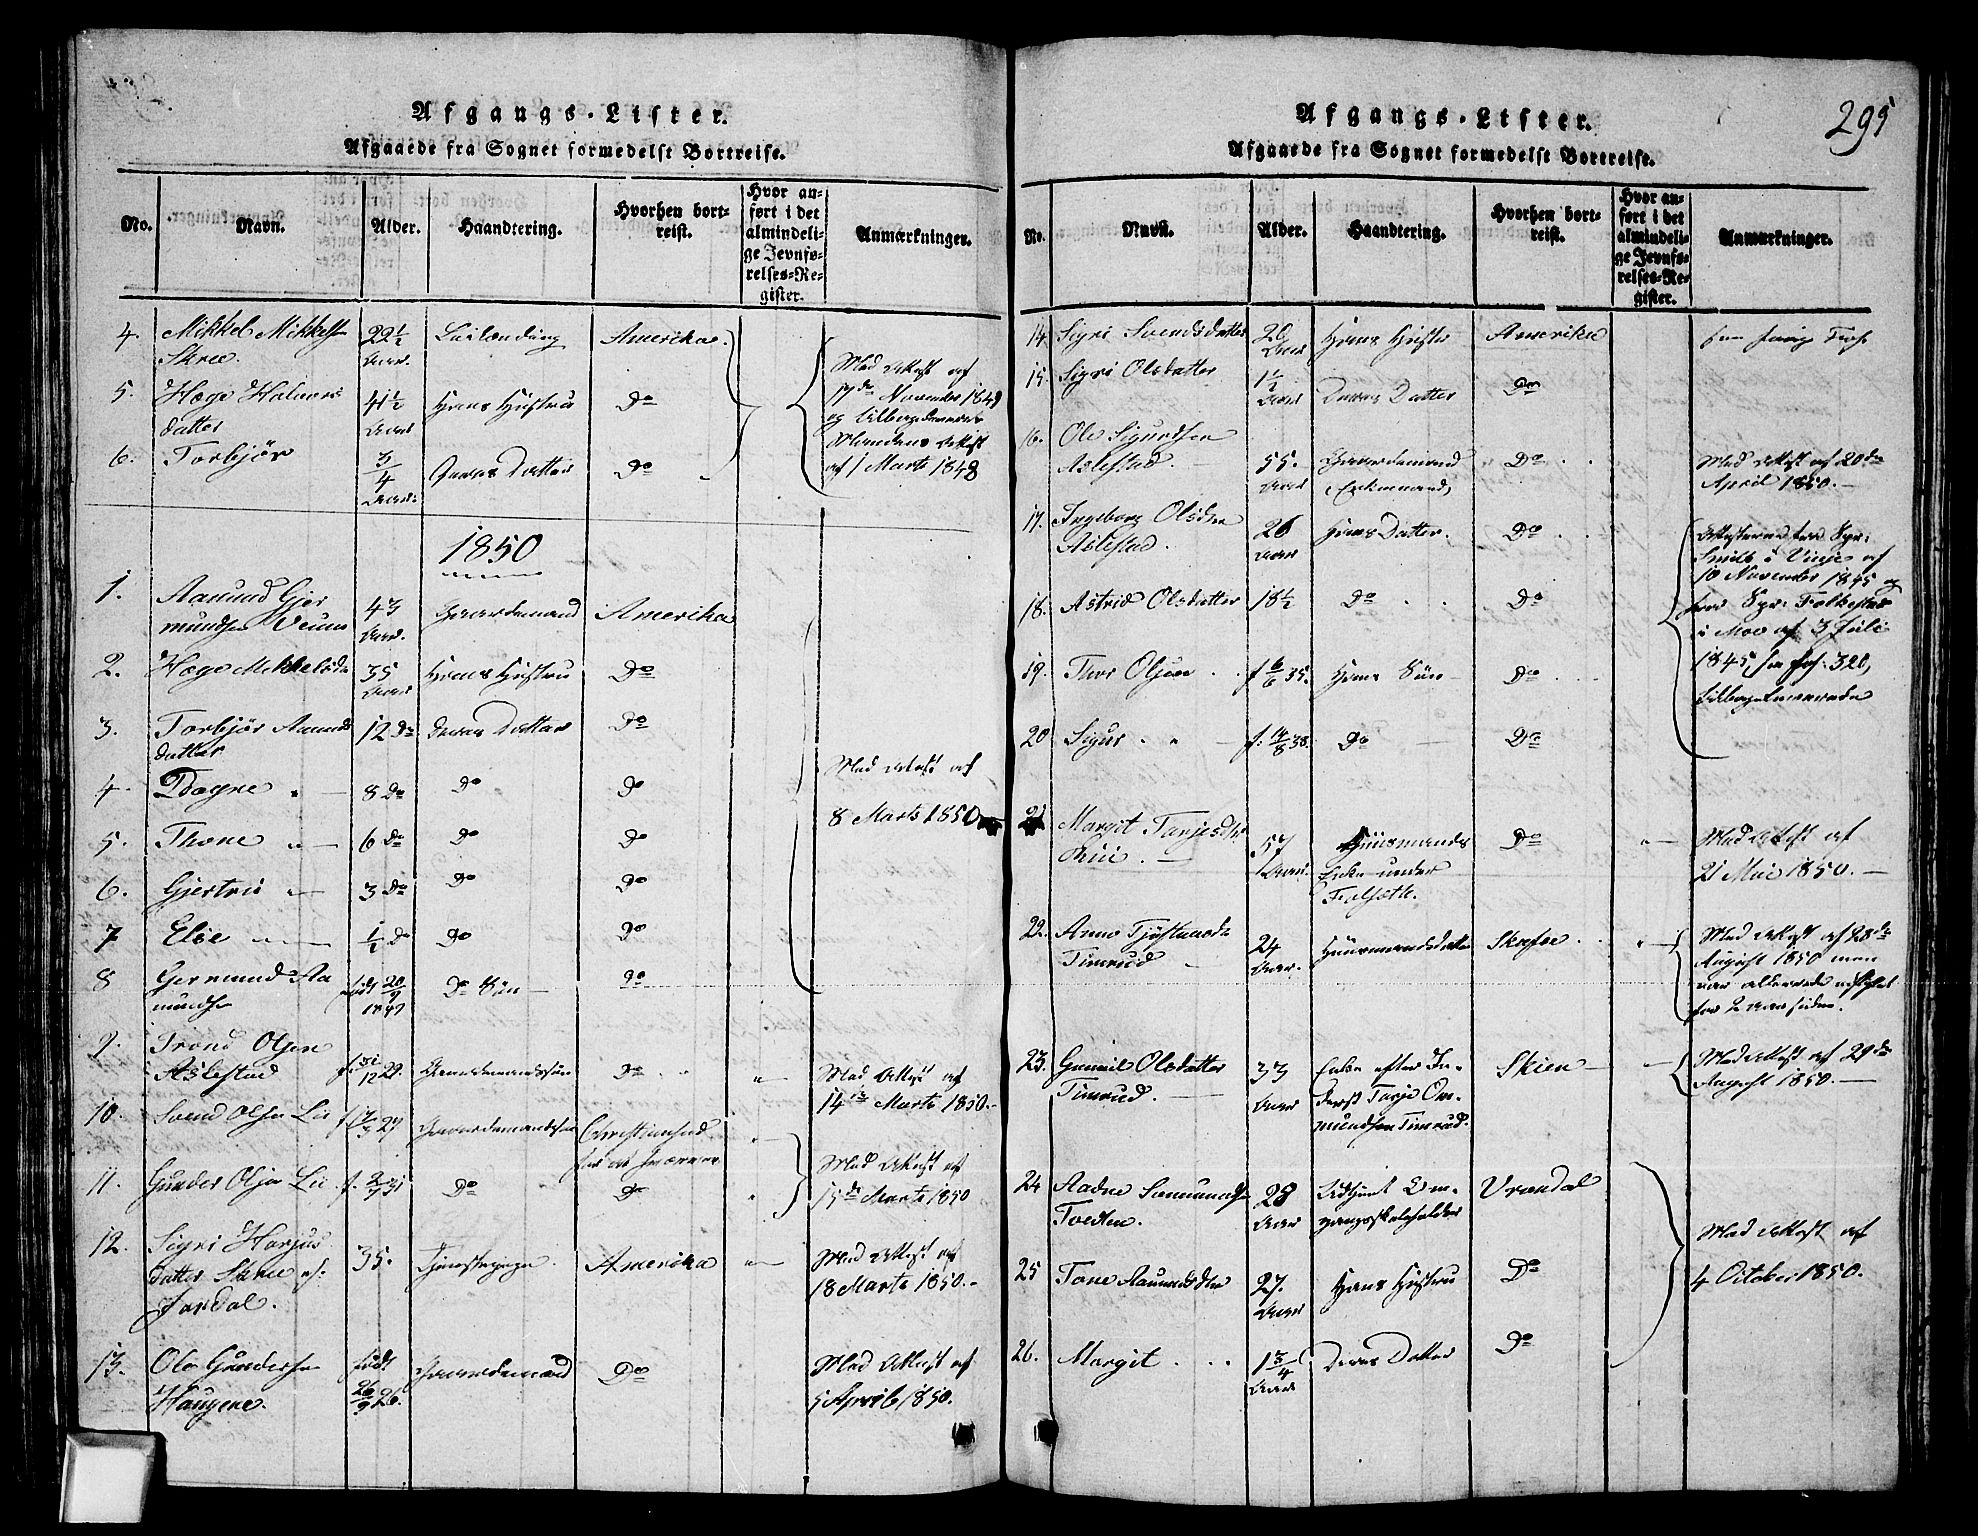 Afgangs-Lister.
Afgaaede fra Sognet formedelst Bortreise.
No. Navn. Alder. Haandtering. Hvorhen bortreist. Hvor anført i det almindelige Jevnførelses-Register. Anmærkninger.
4. Mikkel Mikkelsen 22½ Amerika.
Skree. Aar.
5. Hæge Halvors 41½ Hans Hustru Do
datter Aar
6. Torbjør 3/4 Deres Datter Do
Aar.
Med Attest af
17de November 1849
og
Attest
af 1 Marts 1848
1850
1. Aamund Gjer 43 Gaardemand Amerika
mundsen Veum Aar.
2. Hæge Mikkelsdr 35 Hans Hustru Do
Aar
3. Torbjør Aamunds 12 Do Deres Datter Do
datter
4. Dagne " 8 Do Do Do
5. Thone " 6 Do Do Do
6. Gjertru " 3 Do Do Do
7 Elie " ½ Do Do Do
8 Germund Aa født 20/9 Do Søn Do
mundsen 1847
Med Attest af
8 Marts 1850
9. Trond Olsen
Aslestad f. 31/12 29. Gaardemandssøn Do " Med Attest af
14de Marts 1850.
10. Svend Olsen Lie 27 Gaardemandssøn Christiansand "
11. Gunder Olsen Lie f. 2/7 31 Do Do "
Med Attest af
15de Marts 1850
12. Sigri Herjus 35. Tjenestepige. Amerika " Med Attest af
datter Skree af: 18 Marts 1850.
Jordal.
13. Ole Gundersen født Gaardemand Do Med Attest af
Haugene. 26/9 26. 5 April 1850.
295
Afgangs-Lister.
Afgaaede fra Sognet formedelst Bortreise.
No. Navn. Alder. Haandtering. Hvorhen bortreist. Hvor anført i det almindelige Jevnførelses-Register. Anmærkninger.
14. Sigri Svendsdatter 26 Hans Hustru Amerika
Aar
15. Sigri Olsdatter 1½ Deres Datter Do
Aar
16. Ole Sigurdsen
Aslestad. 55. Gaardemand Do Med Attest af 20de
Aar (Enkemand) April 1850.
17. Ingeborg Olsdtr 26 Hans Datter. Do
Aslestad. Aar
18. Astrid Olsdatter 18½ Do Do
19. Thor Olsen f 6/6 35. Hans Søn Do
20 Sigur " f. 14/8 38. Do Do
Attesterne fra Spr:
Smith i Vinje af
10 November 1845 og
fra Spr: Falkestad
i Moe af 3 Juli
1845, see Prot: 320,
21 Margit Tarjesdtr 57 Huusmands Do " Med Attest af
Aar. Enke under 21 Mai 1850.
22. Anne Tjøstuvsdr 24 Huusmandsdatter Skafse " Med Attest af 28de
Timrud Aar. August 1850 men
var allerede afflyttet
for 2 Aar siden.
23. Gunnil Olsdatter 33 Enke efter In- Skien Med Attest af 29de
Timrud. Aar derst Tarje Om- August 1850.
mundsen Timrud.
24 Aadne Sømundsen 28 Udtjent Om- Vraadal
Tveiten. Aar gangsskoleholder
25 Tone Aamundsdtr 27. Hans Hustru Do
Aar
26. Margit 1 3/4 Deres Datter Do
Aar
Med Attest af
4 October 1850.